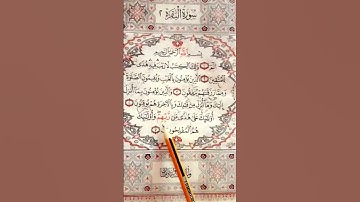 سورة البقرة ٢
بسم الله الرحمن الرحيم
الم ۝ ذلك الكتب لا ريب فيه هدى
للمتقين ۝ الذين يؤمنون بالغيب ويقيمون الصلوة
ومما رزقنهم ينفقون ۝ والذين يؤمنون بما أنزل
إليك وما أنزل من قبلك وبالآخرة هم يوقنون ۝
أولئك على هدى من ربهم وأولئك
هم المفلحون